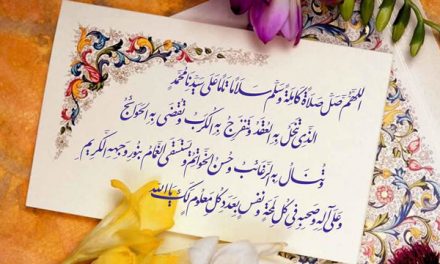 اللهم صل صلاة كاملة وسلم سلاما تاما على سيدنا محمد
الذي تنحل به العقد وتنفرج به الكرب وتقضى به الحوائج
وتنال به الرغائب وحسن الخواتم ويستسقى الغمام بنور وجهه الكريم
وعلى آله وصحبه في كل لمحة ونفس بعدد كل معلوم لك يا الله